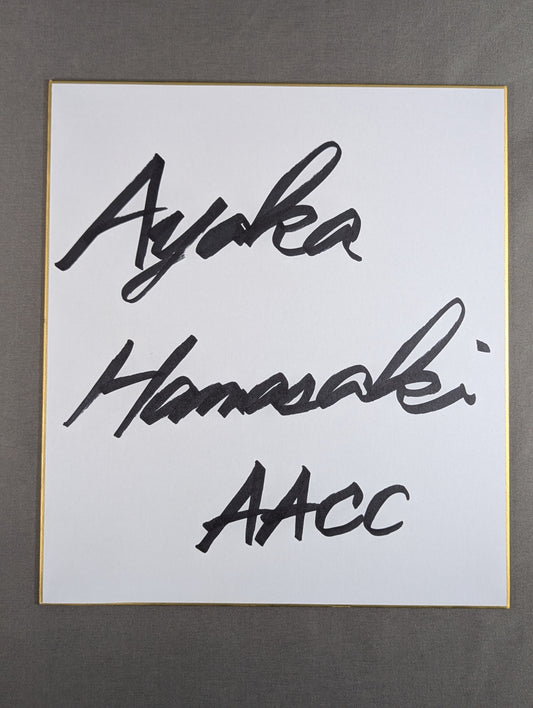 Ayaka
Hamasaki
AACC